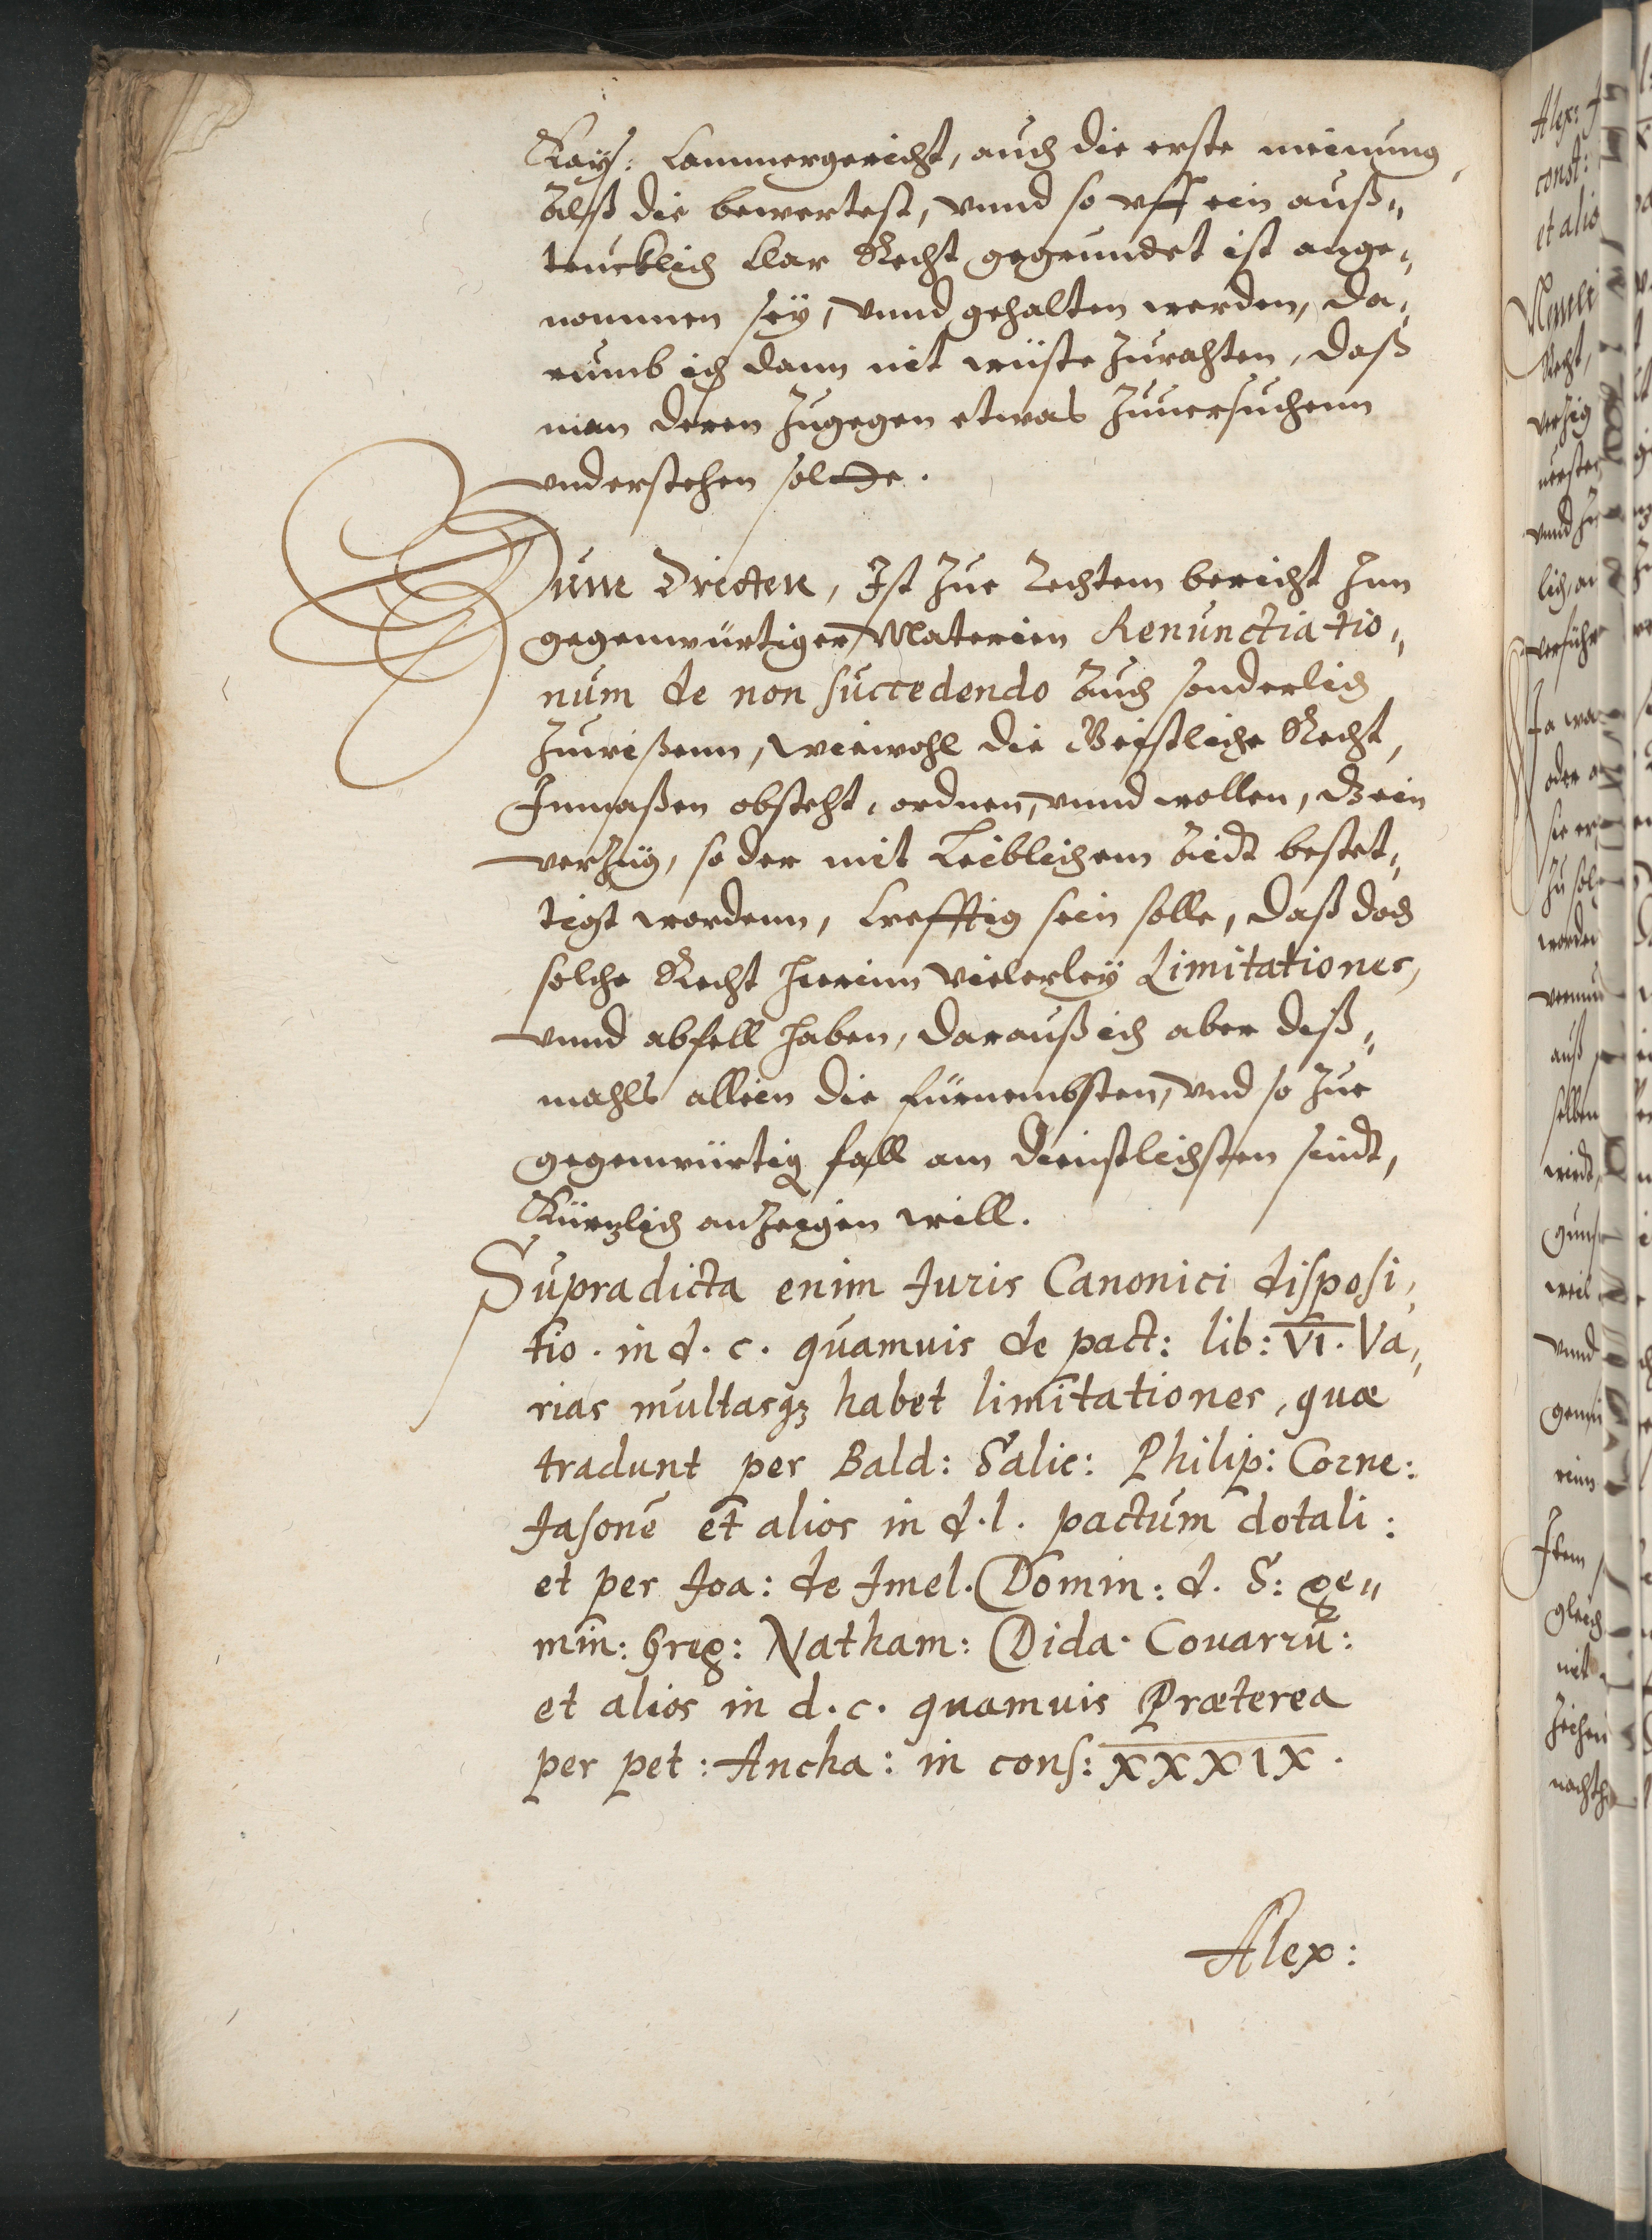 Kays: Cammergericht, auch die erste meinung
Alß die bewertest, vnnd so vff ein auß„
trucklich Clar Recht gegrundet ist ange„
nommen sey, vnnd gehalten werden, da„
rumb ich dann nit wüste Zurahten, daß
man deren Zugegen etwas Zuuersuchenn
vnderstehen soltte.
Zum Dritten, Ist Zur Rechtem bericht Inn
gegenwürtiger Materien Renunctiatio„
num de non succedendo Auch sonderlich
Zuwißenn, wiewohl die Geistliche Recht,
Inmaßen obsteht, ordnen, vnnd wollen, dz ein
verzüg, so der mit Leiblichem Aidt bestet„
tigt wordenn, Crefftig sein solle, daß doch
solche Recht hierinn vielerley Limitationes,
vnnd abfell haben, darauß ich aber diß„
mahls allein die fürnembsten, vnd so Zur
gegenwürtig fall am dienstlichsten seindt,
Kürtzlich anzeigen will.
Supradicta enim Iuris Canonici disposi„
tio. in d. c. quamuis de pact: lib: VI. Va„
rias multasqz habet limitationes, quæ
tradunt per Bald: Salic: Philip: Corne:
Iasonē et alios in d. l. pactum dotali:
et per Ioa: de Imel. Domin: d. S: ge„
min: Greg: Natham: Dida. Couarru:
et alios in d. c. quamuis Præterea
per pet: Ancha: in cons: XXXIX.
Alex:
Alex:
const:
et alio
Recht,
verzig
vnnd
lich,
Ja wa
oder a
sie er
Zu sol
worden
auß
selben
wirdt,
weil
vnnd
Item
gleich
nit